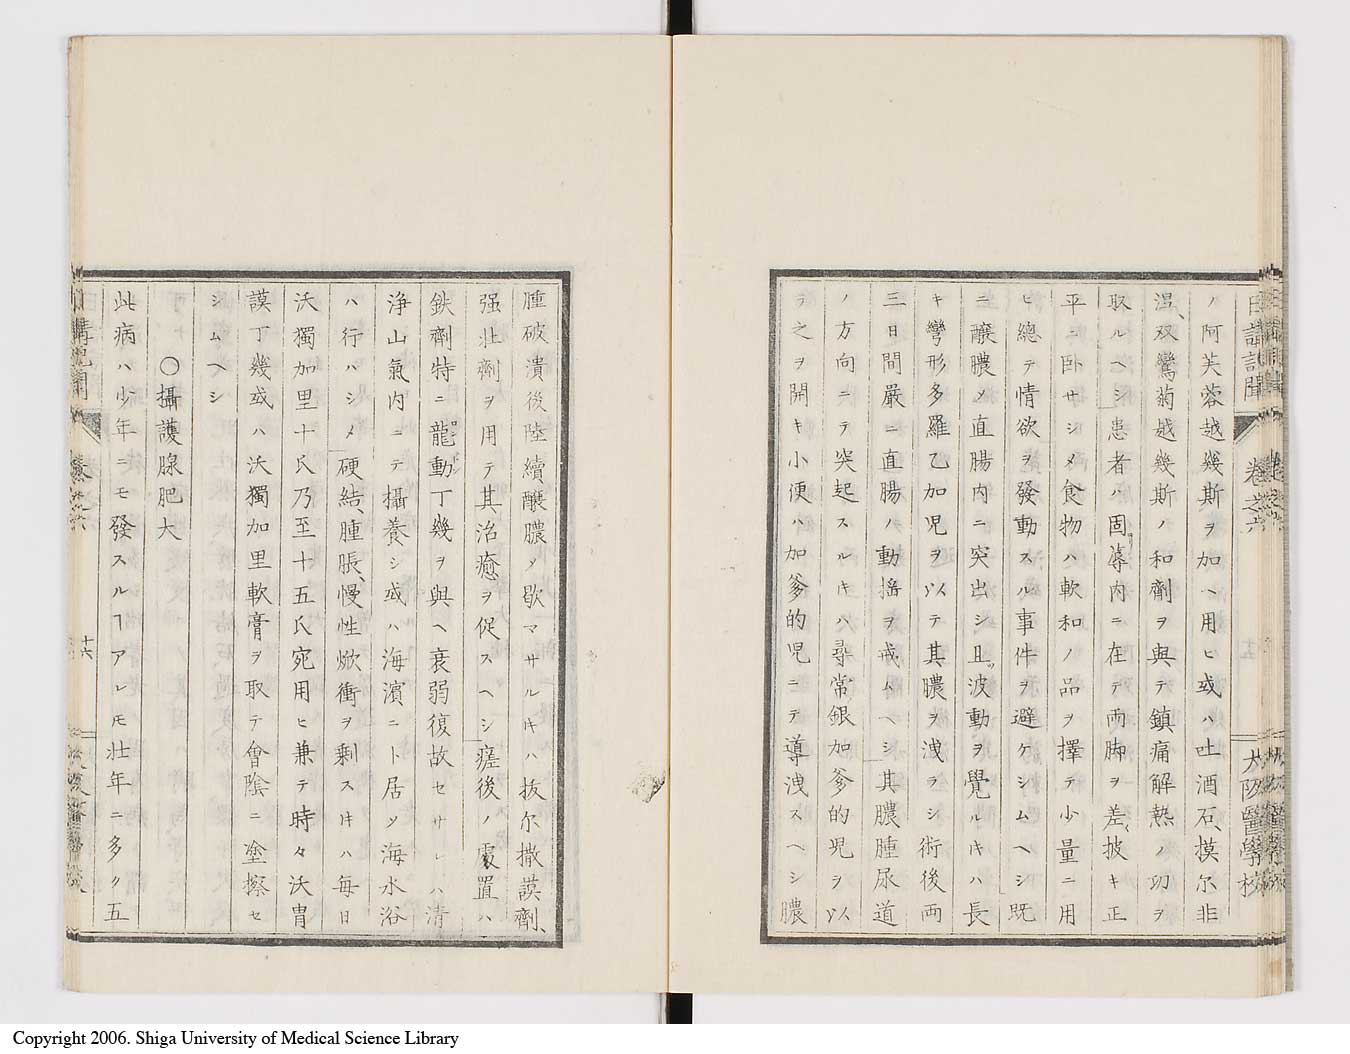 日講記聞 卷之六 大阪醫學校
ノ阿芙蓉越幾斯ヲ加ヘ用ヒ或ハ吐酒石、摸尔非
涅、双鸞菊越幾斯ノ和劑ヲ與テ鎮痛解熱ノ功ヲ
取ルヘシ患者ハ固ヨリ蓐内ニ在テ両脚ヲ差〻披キ正
平ニ臥サシメ食物ハ軟和ノ品ヲ擇テ少量ニ用
ヒ總テ情欲ヲ發動スル事件ヲ避ケシムヘシ既
ニ醸膿メ直腸内ニ突出シ且ツ波動ヲ覺ルキハ長
キ彎形多羅乙加児ヲ以テ其膿ヲ洩ラシ術後両
三日間厳ニ直腸ノ動揺ヲ戒ムヘシ其膿腫尿道
ノ方向ニテ突起スルキハ尋常銀加爹的児ヲ以
テ之ヲ開キ小便ハ加爹的児ニテ導洩スヘシ膿
腫破潰後陸續醸膿メ歇マサルキハ抜尓撒謨劑、
强壮劑ヲ用テ其治癒ヲ促スヘシ瘥後ノ處置ハ
鉄劑特ニ龍動丁幾ヲ與ヘ衰弱復故セサレハ清
浄山氣内ニテ攝養シ或ハ海濱ニト居メ海水浴
ハ行ハシメ硬結、腫脹、慢性焮衝ヲ剩スキハ毎日
沃獨加里十氏乃至十五氏宛用ヒ兼テ時々沃胃
謨丁幾或ハ沃獨加里軟膏ヲ取テ會陰ニ塗擦セ
シムヘシ
○攝護腺肥大
此病ハ少年ニモ發スルヿアレモ壮年ニ多ク五
日講記聞 卷之六 十六